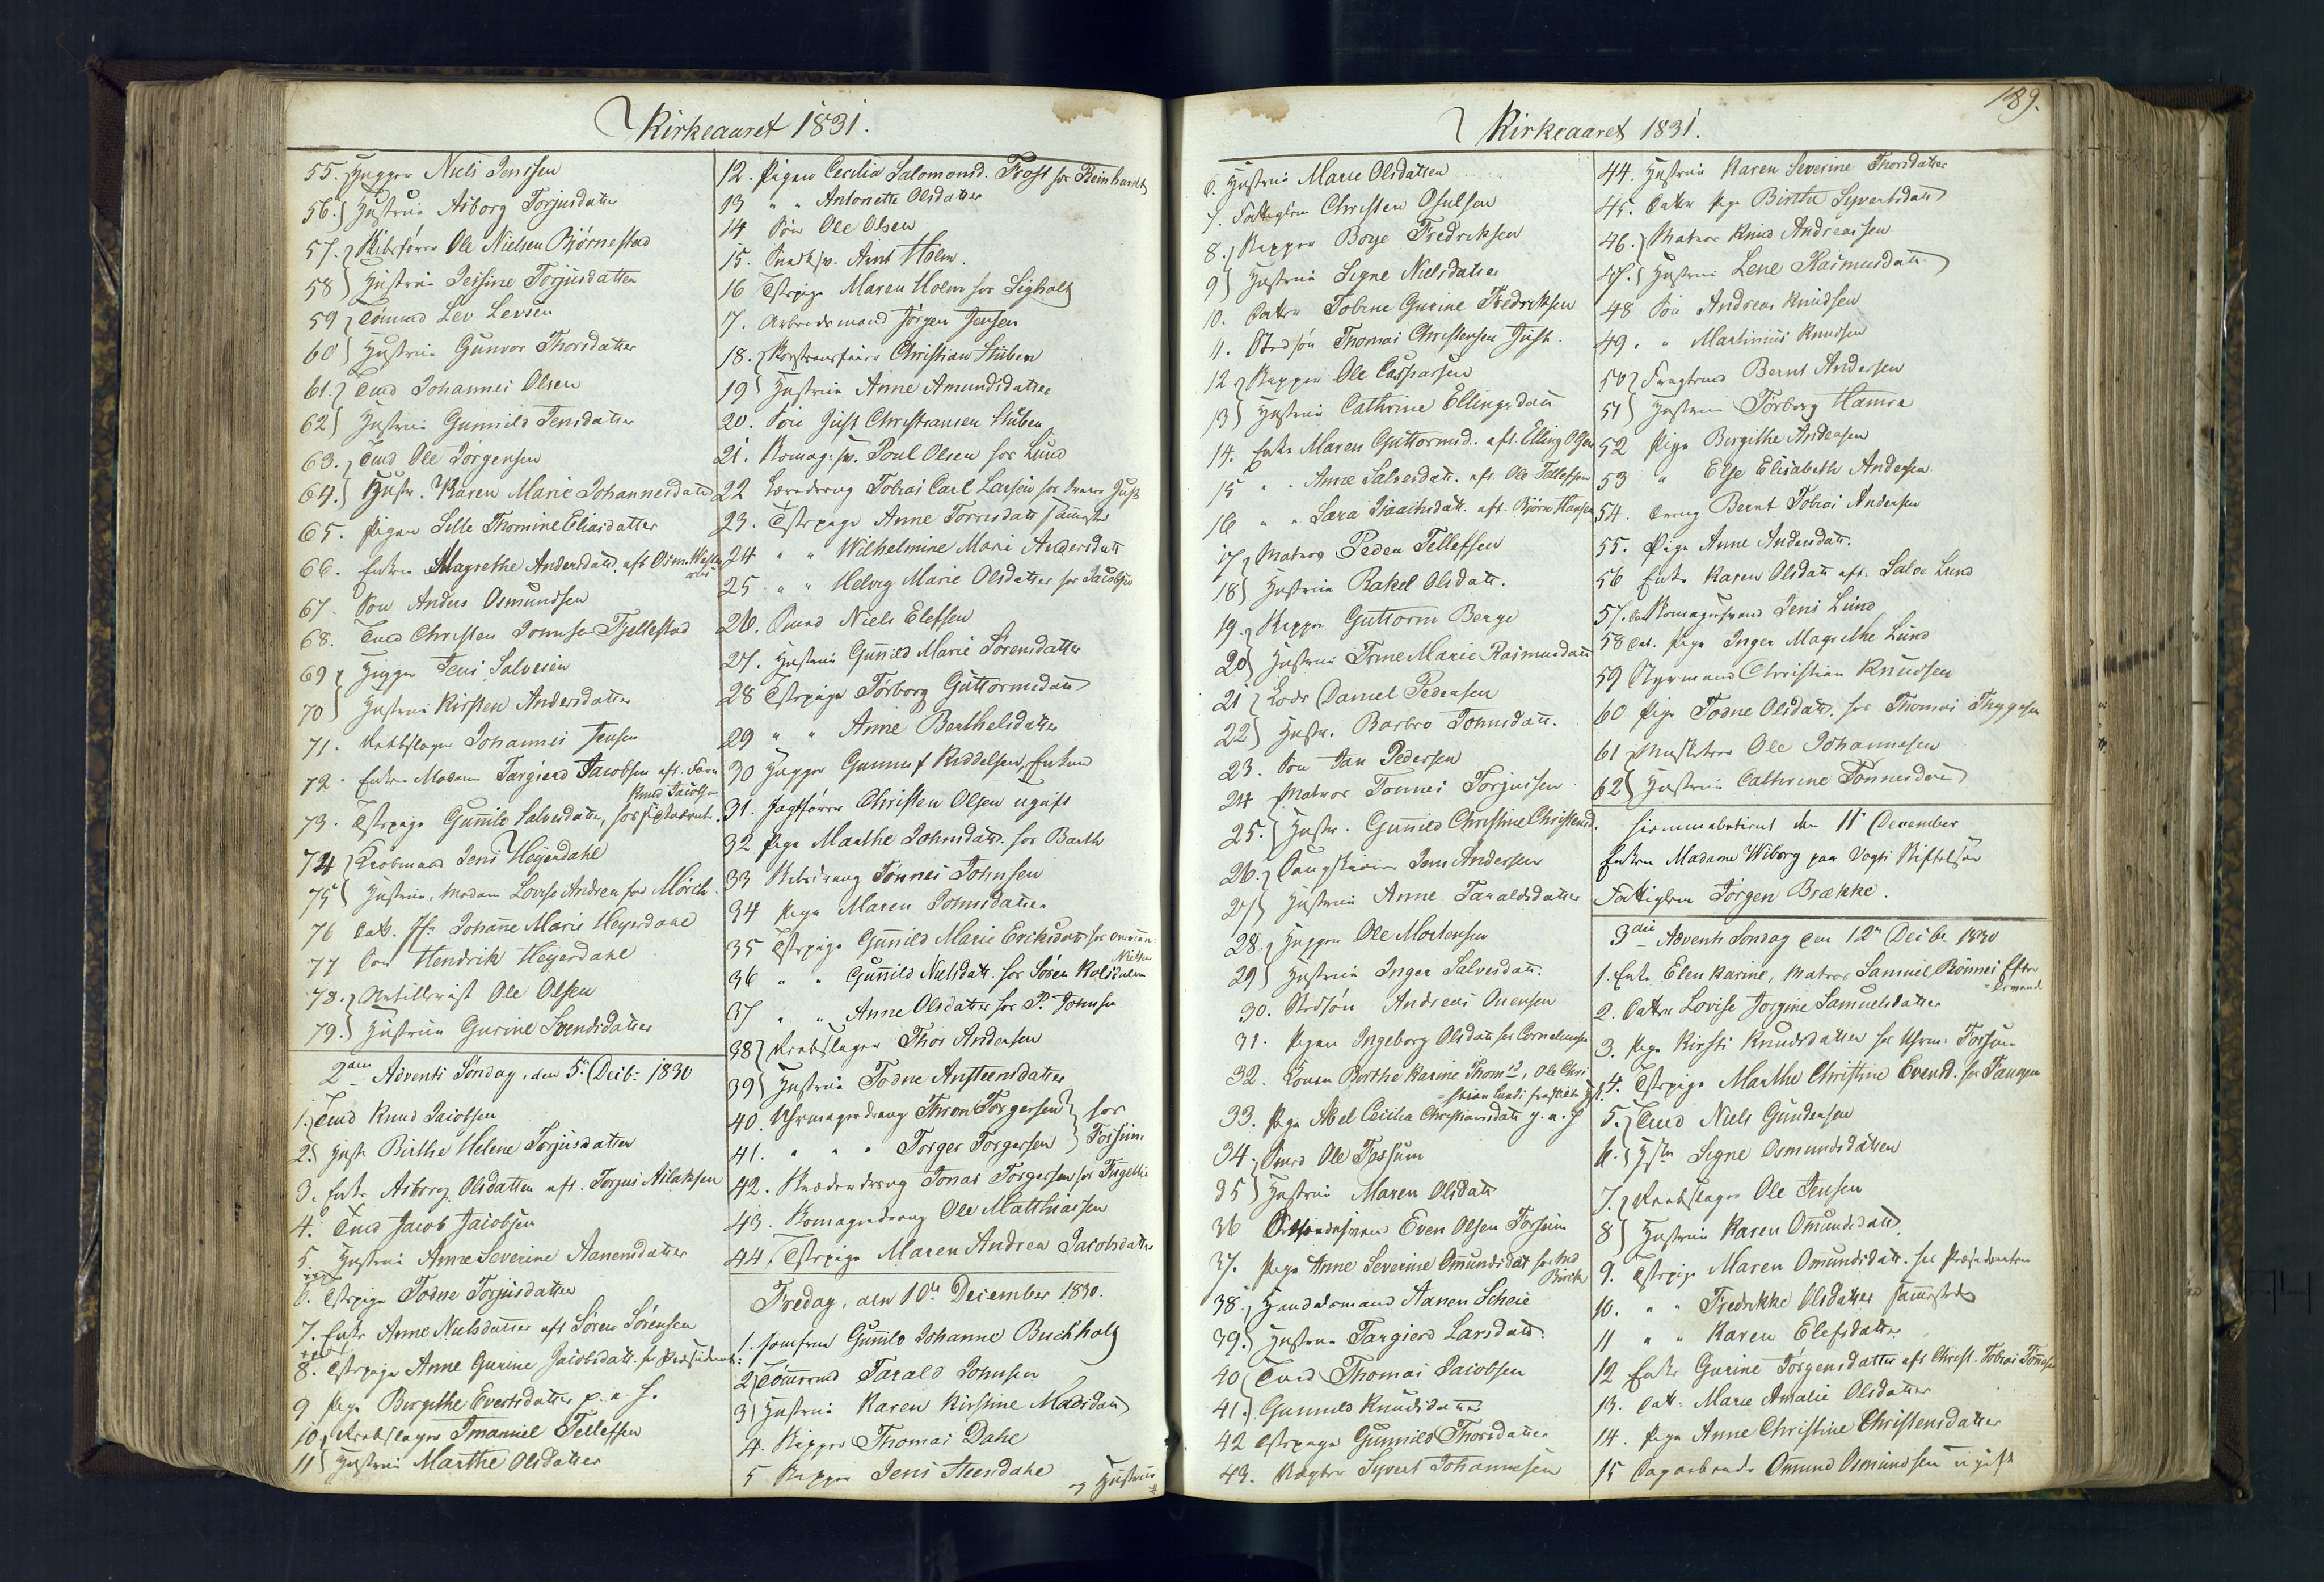 Kirkeaaret 1831.
55. Hugger Niels Jenssen
56. Hustrue Asborg Torjusdatter
57. Skibsfører Ole Nielsen Bjørnestad
58 Hustrue Tessine Torjusdatter
59 Lev Levsen
60 Hustrue Gunvor Thorsdatter
61. Tmd Johannes Olsen
62 Hustrue Gunnild Jensdatter
63. Tmd Ole Jørgensen
64. Hustr. Karen Marie Johannesdatt
65. Pigen Sille Thomine Eliasdatter
66. Enken Magrethe Andersdatt. aft
67. Søn Anders Osmundsen
68. Tmd Christen Tjellestad
69 Jens Salvesen
70 Hustrue Kirsten Andersdatter
71. Rebslager Johannes Jensen
72. Enken Madam Targierd Jacobsen aft.
Knud Jacobsen
73. Tstepige Gunnild Salvesdatter, hos
74 Kiøbmand Jens Heÿerdahl
75 Hustrue, Madam Lovise Andrea før Mörch
76 Datt. Jfr Johanne Marie Heyerdahl
77 Søn Hendrik Heyerdahl
78. Artillerist Ole Olsen
79. Hustrue Gurine Svendsdatter
2den Advents Søndag, den 5. Decb: 1830
1. Tmd Knud Jacobsen
2. Hustr Birthe Helene Torjusdatter
3. Enke Asborg Olsdatter aft. Torjus Aslaksen
4. Tmd Jacob Jacobsen
5. Hustrue Anne Severine Aanensdatter
6. Tstepige Todne Torjusdatter
7. Enke Anne Nielsdatter aft Søren Sørensen
8. Tstepige Anne Gurine Jacobsdatt. hos
9 Pige Birgithe Evertsdatter p. a. H.
10. Rebslager Imanuel Tellefsen
11 Hustrue Marthe Olsdatter
12. Pigen Cecilia Salomonsd. Frost hos Reinhardt
13 " " Antonette Olsdatter
14 Søn Ole Olsen
15. Snedksv. Arnt Holm.
16 Tstepige Maren Holm hos Sigholt
17. Arbeidsmand Jørgen Jensen
18. Christian Stüben
19 Hustrue Anne Amundsdatter
20. Søn Just Christiansen Stüben
21. Skomag: sv. Poul Olsen hos Lund
22 Læredreng Tobias Carl Larsen hos
23. Tstepige Anne Torrisdatt sammested
24 " " Wilhelmine Marie Andersdatt
25 " " Helvig Marie Olsdatter hos Jacobsen
26. Smed Niels Elefsen
27. Hustrue Gunnild Marie Sørensdatter
28 Tstepige Tørborg Guttormsdatt
29 " " Anne Berthelsdatter
30 Hugger Gunnuf Riddelsen, Enkem
31. Jagtfører Christen Olsen ugift
32 Pige Marthe Johnsdatt. hos Barth
33 Tønnes Johnsen
34 Pige Maren Johnsdatter
35 Tstepige Gunnild Marie Eriksdatt hos
Nielsen
36 " " Gunnild Nielsdatt. hos Søren
37 " " Anne Olsdatter hos P. Johnsen
38 Rebslager Thor Andersen
39 Hustrue Todne Anstensdatter
40. Uhrmagerdreng Thron Torgersen hos
41. " " " Torger Torgersen Fossum
42. Skræderdreng Jonas Torgersen hos
43. Skomagerdreng Ole Matthiassen
44. Tstepige Maren Andrea Jacobsdatter
Fredag, den 10de December 1830.
1. Jomfrue Gunild Johanne Buchholtz
2 Tømmrmd Tarald Johnsen
3 Hustrue Karen Kirstine Madsdatt
4. Skipper Thomas Dahl
5 Skipper Jens Steendahl
Hustrue
Kirkeaaret 1831.
189.
6. Hustrue Maren Olsdatter
7. Fattiglem Christen Osulsen
8. Skipper Børje Fredriksen
9 Hustrue Signe Nielsdatter
10. Datter Tobine Gurine Fredriksen
11. Stedsøn Thomas Christensen Just.
12 Skipper Ole Caspersen
13 Hustrue Cathrine Ellingsdatt
14. Enke Maren Guttormsd. aft. Elling Olsen
15 " . Anne Salvesdatt. aft. Ole Tellefsen
16 " " Sara Isaachsdatt. aft. Bjørn Hansen
17 Matros Peder Tellefsen
18 Hustrue Rakel Olsdatt.
19. Skipper Guttorm Berge
20 Hustrue Trine Marie Rasmusdatt
21 Lods Daniel Pedersen
22 Hustr. Barbro Tomsdatt.
23. Søn Jan Pedersen
24 Matros Tønnes Torjussen
25. Hustr. Gunnild Christine Christensd.
26. Jens Andersen
27 Hustrue Anne Taraldsdatter
28. Hugger Ole Mortensen
29 Hustrue Inger Salvesdatt.
30. Stedsøn Andreas Ouensen
31. Pigen Ingeborg Olsdatt hos Corneliussen
32. Konen Berthe Karine Thomd, Ole Chri
stian Lunds fraskilte Hustr.
33. Pige Abel Cecilia Christiansdatt p. a. H
34. Smed Ole Fossum
35 Hustrue Maren Olsdatt
36 Even Olsen Fossum
37. Pige Anne Severine Omundsdatt hos Md
Birch
38. Handelsmand Aanen Scheie
39. Hustrue Targierd Larsdatt.
40 Tmd Thomas Jacobsen
41. Gunnild Knudsdatter
42 Tstepige Gunnild Thorsdatter
43. Vægter Syvert Johannesen
44. Hustrue Karen Severine Thorsdatter
45. Datter Pige Birthe Syvertsdatt
46. Matros Knud Andreassen
47. Hustrue Lene Rasmusdatt
48 Søn Andreas Knudsen
49. " Martinius Knudsen
50 Bernt Andersen
51 Hustrue Tørborg Hamre
52 Pige Birgithe Andersen
53 " Else Elisabeth Andersen
54. Dreng Bernt Tobias Andersen
55. Pige Anne Andersdatt.
56 Enke Karen Olsdatt aft. Salve Lund
57. Skomagersvend Jens Lund
58 Dat. Pige Inger Magrethe Lund
59 Styrmand Christian Knudsen
60 Pige Todne Olsdatt. hos Thomas Thygesen
61 Musketeer Ole Johannesen
62 Hustrue Cathrine Tønnesdatt
Hiemmeberettet den 11te December
Enken Madame Wiborg paa Vogts Stiftelse
Fattiglem Jørgen Brække.
3die Advents Søndag den 12te Decbr 1830
1. Enke Elen Karine, Matros Samuel Rønnes Efter
2. Datter Lovise Jorgine Samuelsdatter
3. Pige Kirsti Knudsdatter hos Uhrm. Fossum
4. Tstepige Marthe Christine Evend. hos
5. Tmd Niels Gundersen
6. Hstr Signe Osmundsdatter
7. Rebslager Ole Jensen
8 Hustrue Karen Omundsdatt
9. Tstepige Maren Omundsdatt. hos Præsidenten
10. " " Fredrikke Olsdatter sammesteds
11 " " Karen Elefsdatter
12 Enke Gurine Jørgensdatter aft Christ. Tobias Tønnesen
13. Datt. Marie Amalie Olsdatter
14. Pige Anne Christine Christensdatter
15 Dagarbeider Omund Osmundsen ugift